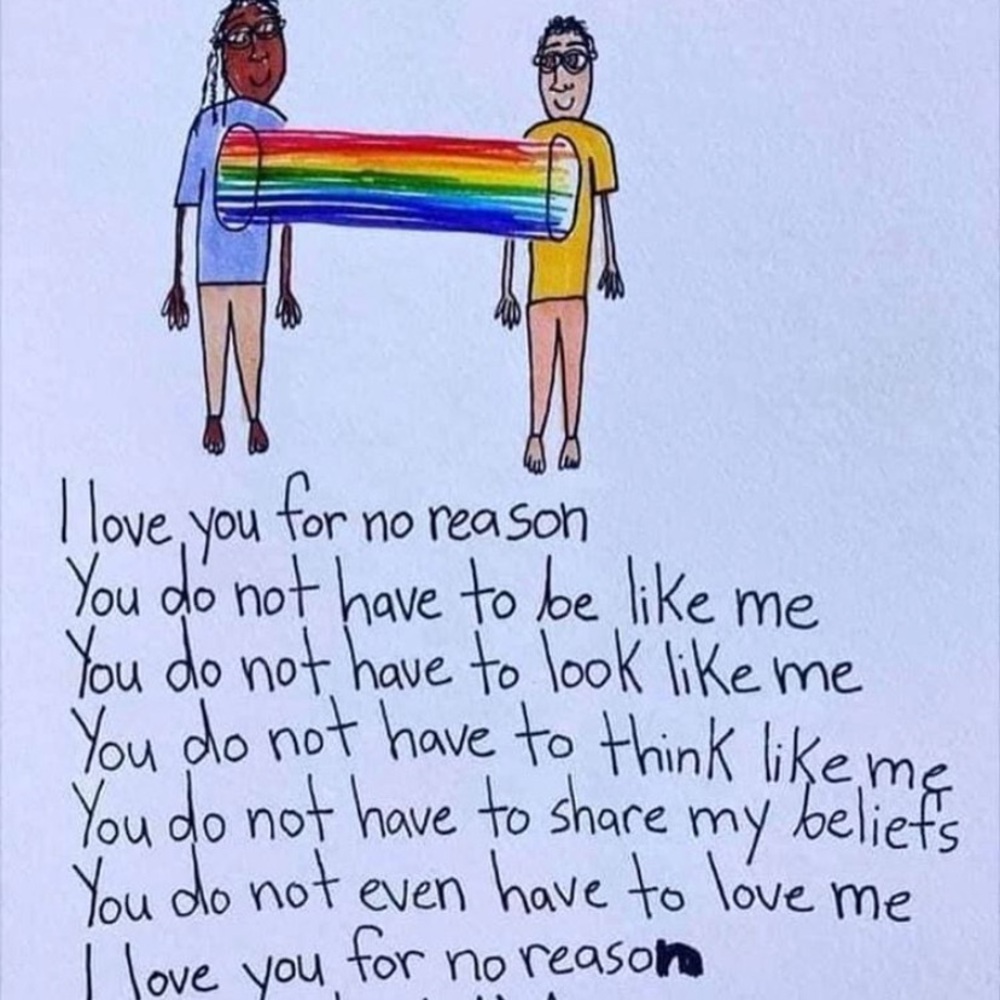 I love you for no reason
You do not have to be like me
You do not have to look like me
You do not have to think like me
You do not have to share my beliefs
You do not even have to love me
I love you for no reason